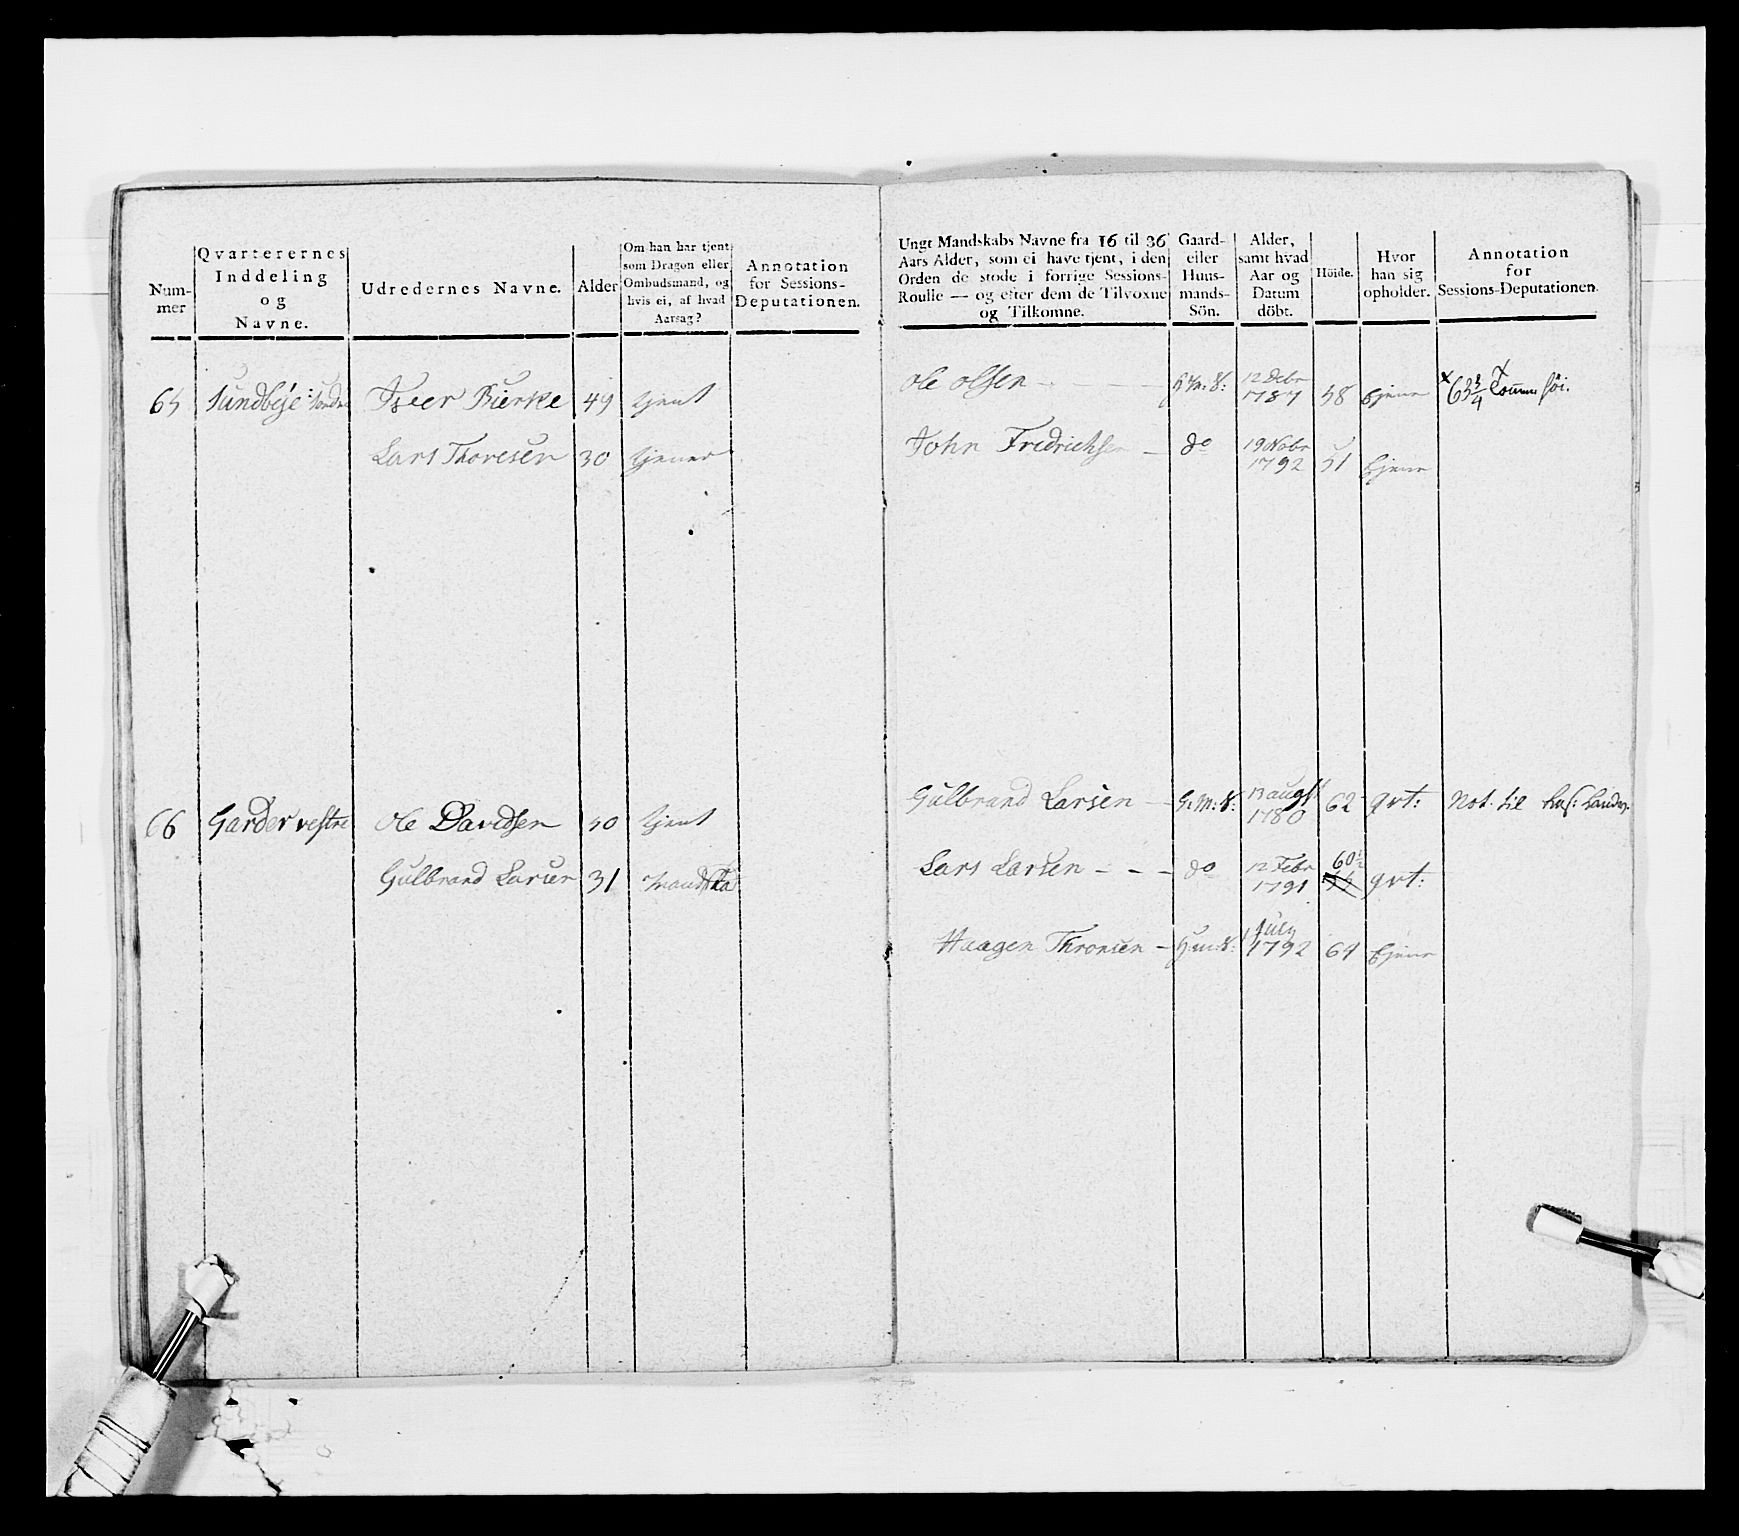 Num-
mer
Qvarterernes
Inddeling
og
Navne.
Udredernes Navne.
Alder
Om han har tjent
som Dragon eller
Ombudsmand, og
hvis ei, af hvad
Aarsag?
Annotation
for Sessions-
Deputationen.
65 Sundbÿe Søndre Iver Bierke 49 tjent
Lars Thoresen 30 tjener
66 Garder vestre Ole Davidsen 50 tjent
Gulbrand Larsen 31
Ungt Mandskabs Navne fra 16 til 36
Aars Alder, som ei have tjent, i den
Orden de stode i forrige Sessions-
Roulle — og efter dem de Tilvoxne
og Tilkomne.
Gaard-
eller
Huus-
mands-
Sön.
Alder,
samt hvad
Aar og
Datum
döbt.
Höide.
Hvor
han sig
opholder.
Annotation
for
Sessions-Deputationen.
Ole Olsen - - - H: M: S: 12 Debr 1787 58 tjener × 63 3/4 Tomme høi.
John Fredrichsen — do 19 Nobr 1792 51 tjener
Gulbrand Larsen — G: M: S: 13 augst 1780 62 qvt: Not. til
Lars Larsen - - - do 12 Febr 1791 60 1/2 qvt:
Haagen Thronsen — H: m: S: 1 July 1792 64 tjener